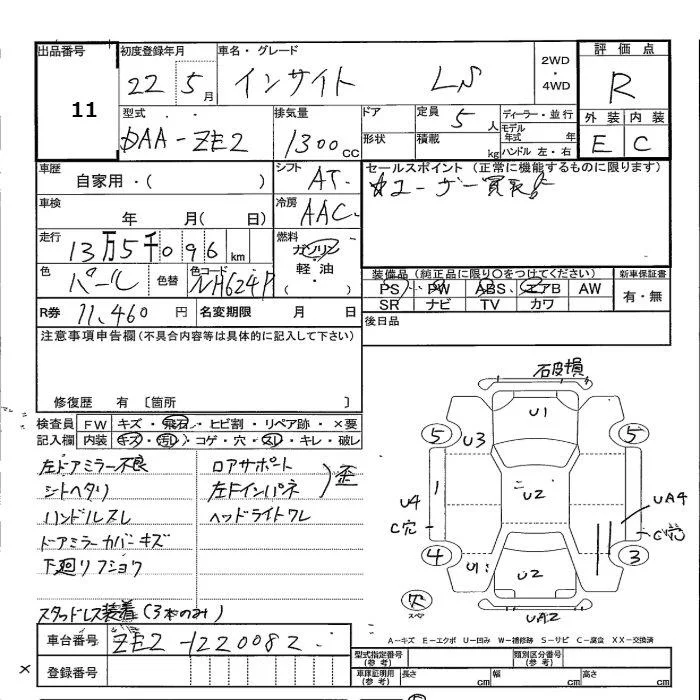 出品番号
11
初度登録年月
22 5月
車名・グレード
インサイト LS
2WD
・
4WD
評価点
R
外装 内装
E C
型式
DAA-ZE2
排気量
1300cc
ドア
形状
定員 5人
積載 kg
ディーラー・並行
モデル年式 年
ハンドル 左・右
車歴
自家用・( )
シフト
AT
セールスポイント (正常に機能するものに限ります)
ユーザー買取
車検
年 月( 日)
冷房
AAC
走行
13万5千096km
燃料
ガソリン
軽油
( ・ )
色
パール
色替
色コード
NH624P
装備品(純正品に限り○をつけてください)
PS PW ABS エアB AW
SR ナビ TV カワ
新車保証書
有・無
後日品
R券 11,460円
名変期限 月 日
注意事項申告欄(不具合内容等は具体的に記入して下さい)
修復歴 有 〔箇所 〕
検査員記入欄
FW キズ・飛石・ヒビ割・リペア跡・×要
内装 キズ・汚レ・コゲ・穴・スレ・キレ・破レ
左ドアミラー不良
シートヘタリ
ハンドルスレ
ドアミラーカバーキズ
下廻リフショク
スタッドレス装着(3本のみ)
コアサポート
左Fインパネ
歪
ヘッドライトワレ
石破損
U1
5
U3
5
U4
C穴
1
ニ
U2
UA4
C穴
4
U1
3
U2
穴
スペア
UA2
A-キズ E-エクボ U-凹み W-補修跡 S-サビ C-腐食 XX-交換済
車台番号
ZE2-1220082
登録番号
×
型式指定番号
(参考)
類別区分番号
(参考)
車庫証明用
(参考)
長さ cm
幅 cm
高さ cm